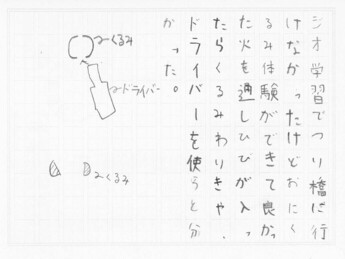 ジオ学習でつり橋に行
けなかったけどおにく
るみ体験ができて良かっ
た火を通しひびが入っ
たらくるみわりきや、
ドライバーを使うと分
かった。
くるみ
ドライバー
くるみ